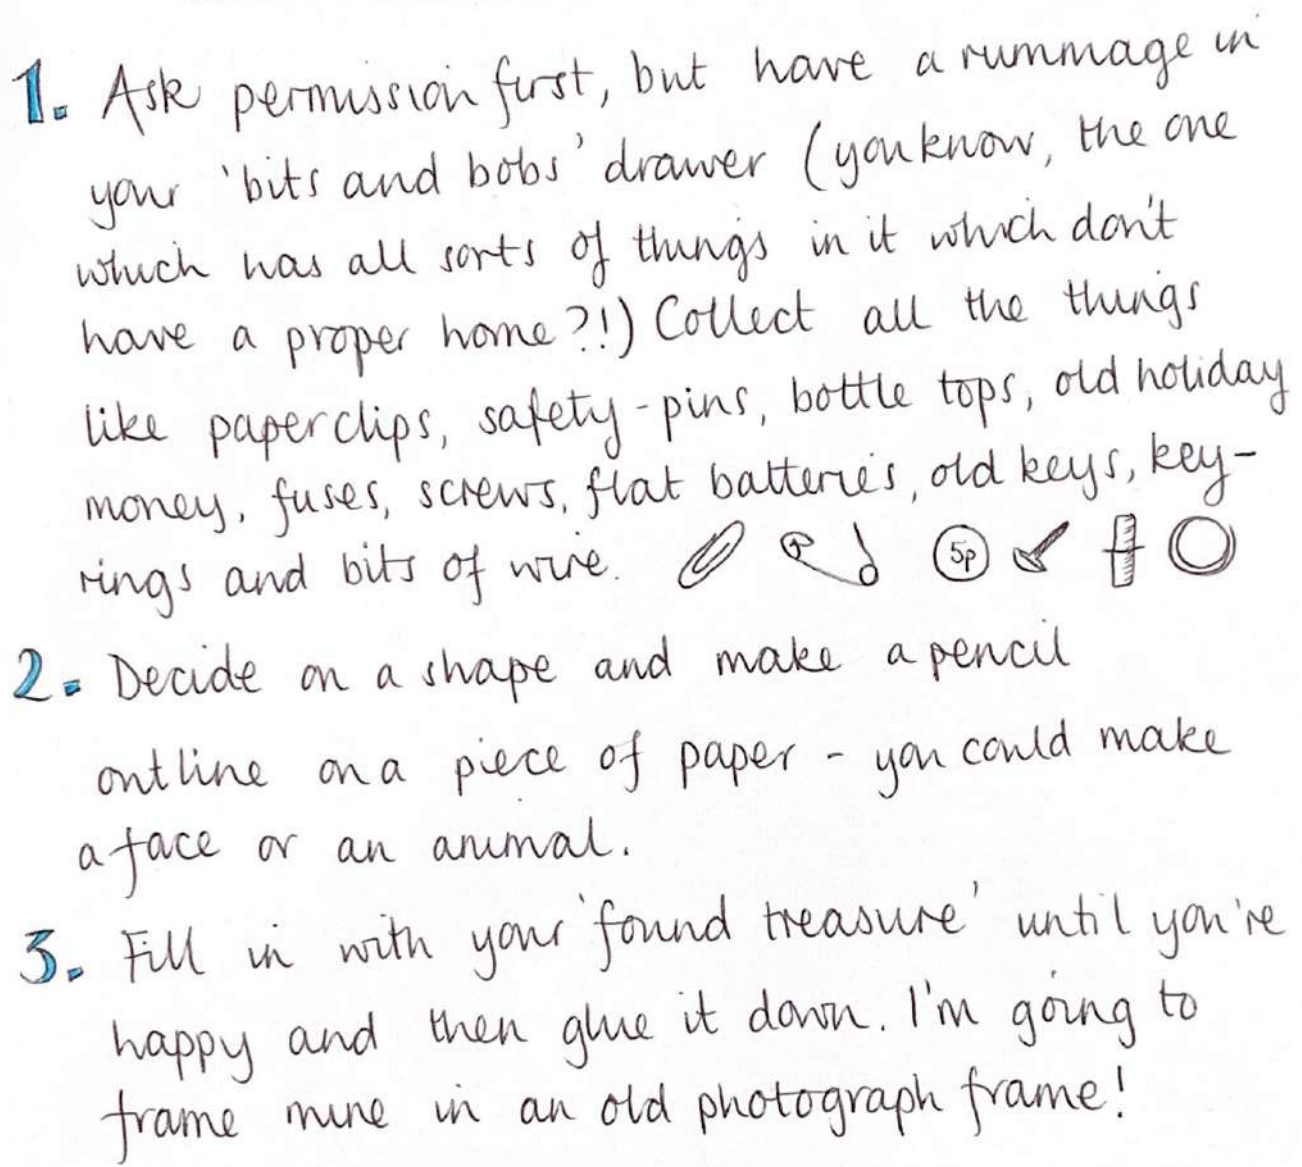 1. Ask permission first, but have a rummage in
your 'bits and bobs' drawer (you know, the one
which has all sorts of things in it which don't
have a proper home?!) Collect all the things
like paperclips, safety-pins, bottle tops, old holiday
money, fuses, screws, flat batteries, old keys, key-
rings and bits of wire. 5p
2. Decide on a shape and make a pencil
outline on a piece of paper - you could make
a face or an animal.
3. Fill in with your 'found treasure' until you're
happy and then glue it down. I'm going to
frame mine in an old photograph frame!